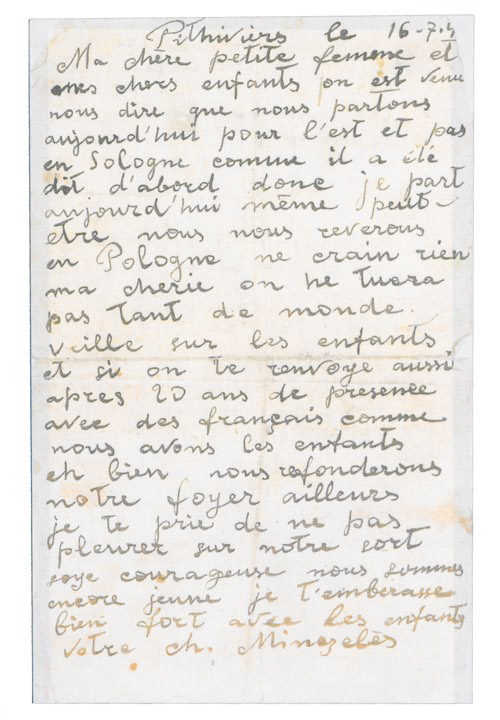 Pithiviers le 16-7-4
Ma chère petite femme et
mes chers enfants on est venu
nous dire que nous partons
aujourd'hui pour l'est et pas
en Sologne comme il a été
dit d'abord donc je part
aujourd'hui même peut-
etre nous nous reverous
en Pologne ne crain rien
ma cherie on ne tuera
pas tant de monde.
veille sur les enfants
et si on te renvoye aussi
apres 20 ans de presence
avec des français comme
nous avons les enfants
eh bien nous refonderous
notre foyer ailleurs
je te prie de ne pas
pleurer sur notre sort
soye courageuse nous sommes
encore jeune je t'emberasse
bien fort avec les enfants
votre ch. Minezelès